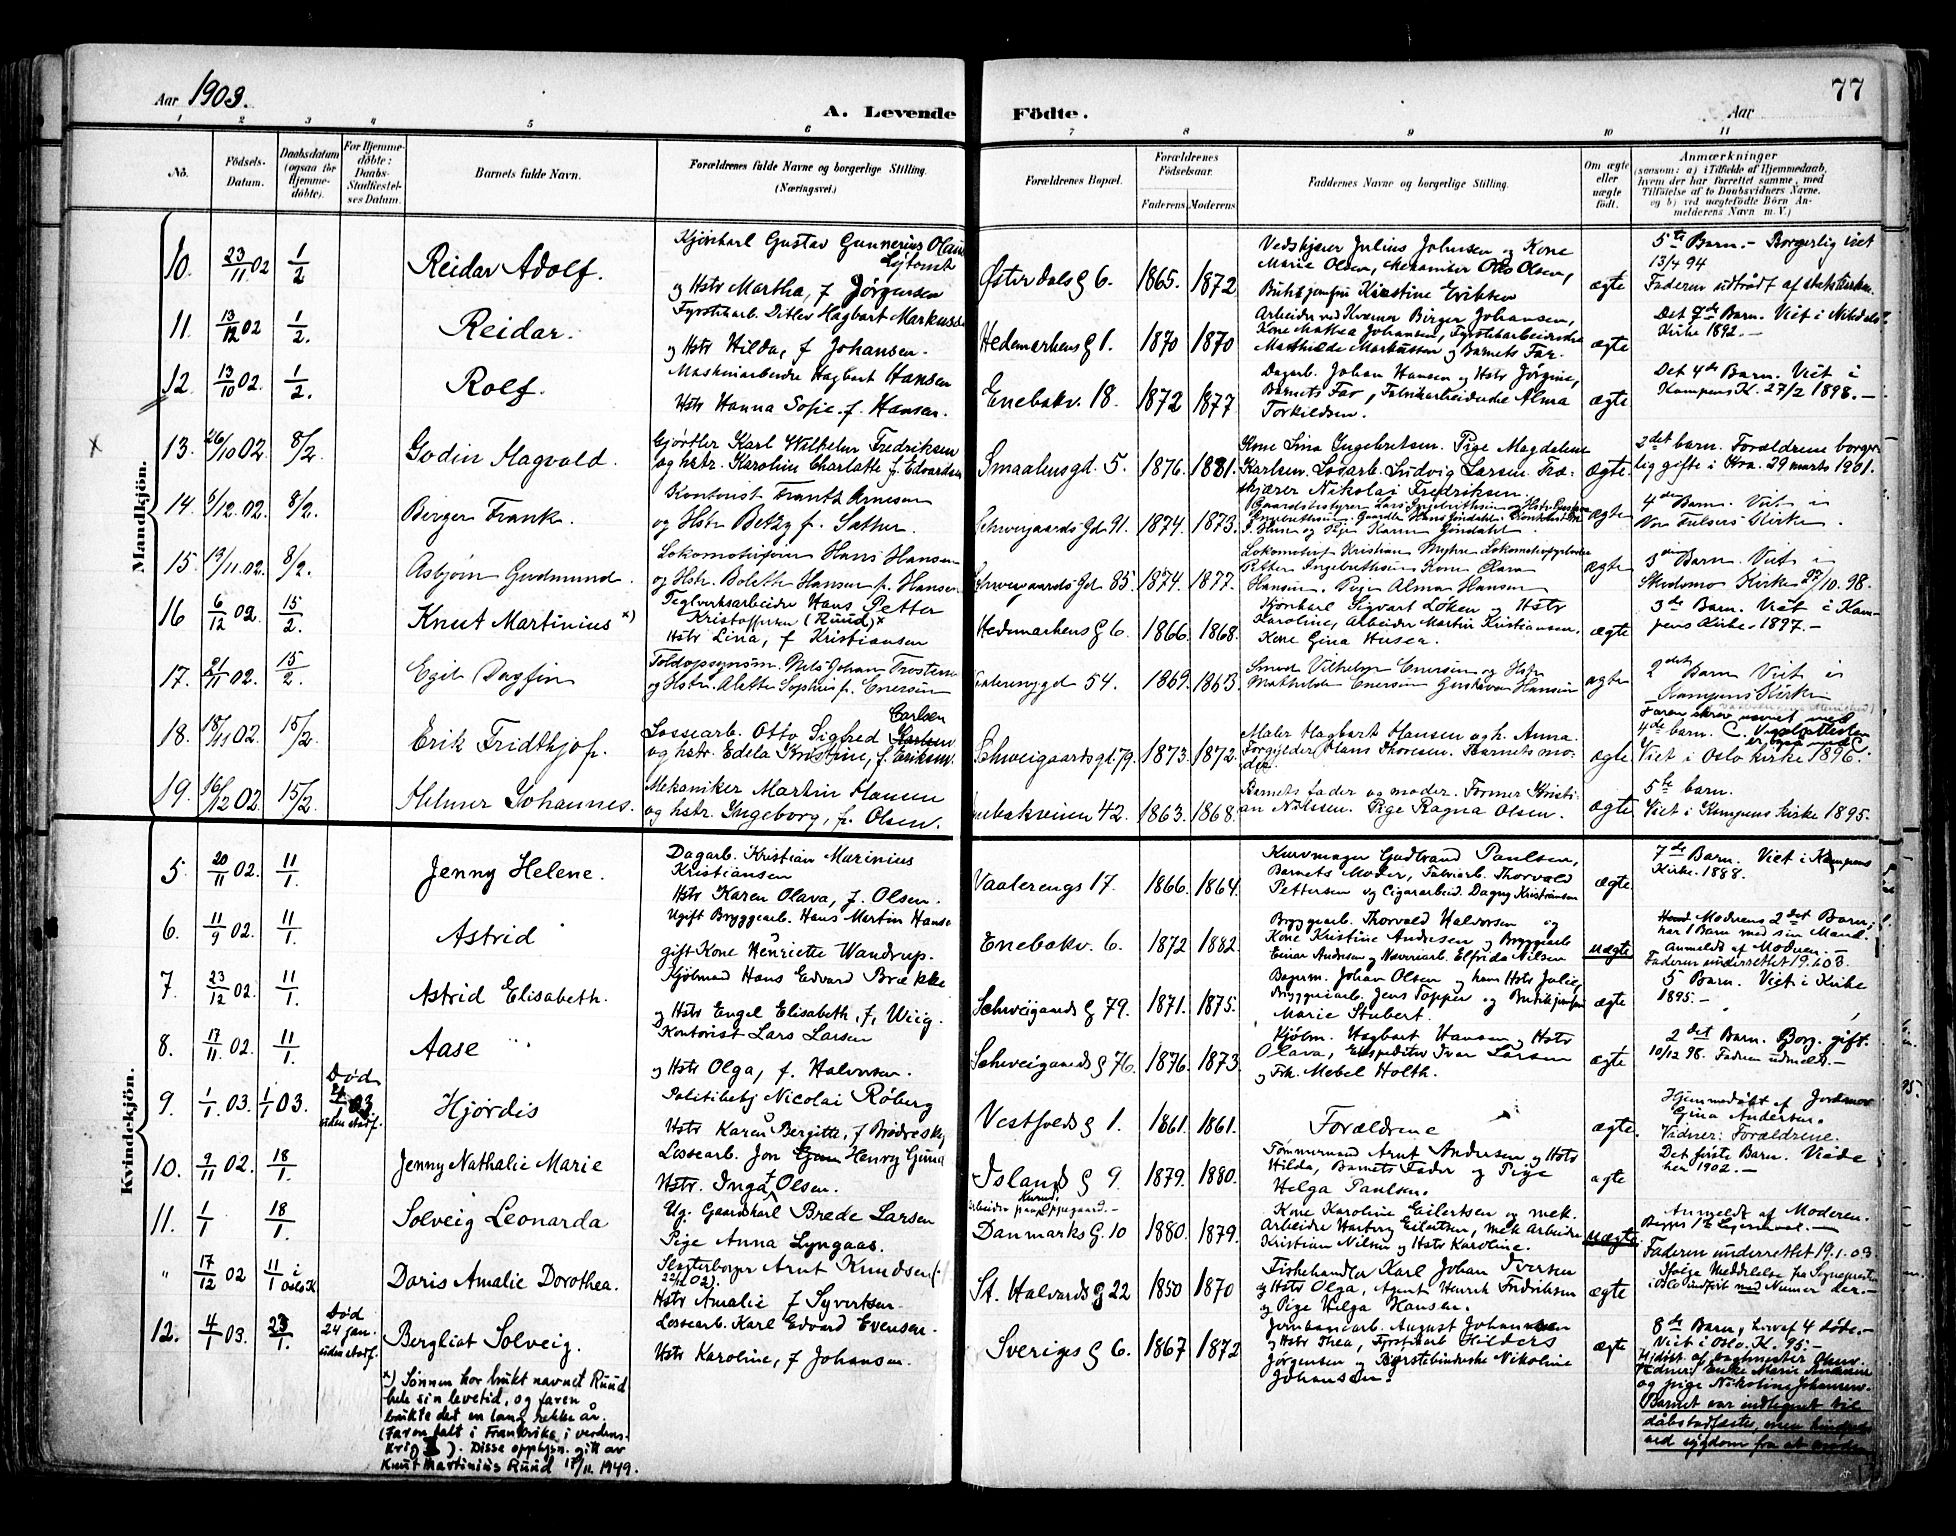 Aar 1903.
A. Levende Födte.
Aar
77
1 2 3 4 5 6 7 8 9 10 11
No.
Födsels-Datum.
Daabsdatum (ogsaa for Hjemmedöbte).
For Hjemmedøbte: Daabs-Stadfæstelses Datum.
Barnets fulde Navn.
Forældrenes fulde Navne og borgerlige Stilling. (Næringsvei.)
Forældrenes Bopæl.
Forældrenes Födselsaar.
Faderens. Moderens.
Faddernes Navne og borgerlige Stilling.
Om ægte eller uægte födt.
Anmærkninger
(saasom: a) i Tilfælde af Hjemmedaab, hvem der har forrettet samme, med Tilföielse af to Daabsvidners Navne, og b) ved uægtefödte Börn Anmelderens Navn m. V.)
Mandkjön.
10. 23/11 02 1/2 Reidar Adolf.
Kjørekarl Gustav Gunnerius Olaus
og Hstr Martha, f. Jörgensen
Østerdals g 6. 1865. 1872
Vedskjærer Julius Johnsen og Kone
Marie Olsen, Mekaniker Otto Olsen,
Kristine Eriksen
ægte
5te Barn. - Borgerlig viet
13/4 94
Faderen udtrådt af statskirken.
11. 13/12 02 1/2. Reidar.
Fyrstikarb. Ditlev Hagbart Markussen
og Hstr Hilda, f Johansen.
Hedemarkens g 1. 1870 1870
Arbeider ved Kværner Birger Johansen,
Kone Mathea Johansen, Fyrstikarbeiderske
Mathilde Markussen og Barnets Far.
ægte
Kirke 1892.-
12. 13/10 02. 1/2. Rolf.
Maskinarbeider Hagbart Hansen
Hstr Hanna Sofie f. Hansen.
Enebakv. 18. 1872 1877
Dagarb. Johan Hansen og Hstr Jørgine,
Barnets Far, Fabrikarbeiderske Alma
Torkildsen.
ægte
Det 4de Barn. Viet i
Kampens K. 27/2 1898.-
x
13. 26/10 02 8/2. Godin Magvald.
Gjørtler Karl Wilhelm Fredriksen
og hstr. Karoline Charlotte f. Edvardsen
Smaalensgd. 5. 1876. 1881.
Kone Lina Ingebretsen. Pige Magdalene
Karlsen. Losarb. Ludvig Larsen. Træ-
skjærer Nikolai Fredriksen.
ægte.
2det barn. Forældrene borger-
lig gifte i Kra. 29 marts 1901.
14. 5/12. 02. 8/2. Berger Frank.
Kontorist Frantz Arnesen
og Hstr Betzy f. Sather.
Schweigaards Gd 91. 1874. 1873.
ægte
4de Barn. Viet i
Vor Frelsers Kirke.
15. 19/11. 02. 8/2. Asbjørn Gudmund.
Hans Hansen
og Hstr. Boleth Hansen f. Hansen
Schweigaards Gd 85 1874. 1877.
Petter Ingebrethsen Kone Olava
Hansen. Pige Alma Hansen
ægte
3die Barn Viet i
Skedsmo Kirke 27/10. 98.
16 6/12 02. 15/2. Knut Martinius x)
Teglverksarbeider Hans Petter
Kristoffersen (Ruud) x
Hstr Lina, f Kristiansen
Hedemarkens g 6. 1866. 1868.
Kjørekarl Sigvart Løken og Hstr
Karoline, Arbeider Martin Kristiansen.
Kone Gina Huser.
ægte
3de Barn. Viet i Kam-
pens Kirke. 1897.-
17. 21/11 02. 15/2. Egil Dagfin
Toldopsynsm. Nils Johan Trosterud
og Hstr. Alette Sophie f. Enersen
Vaalerenggd 54. 1869. 1863.
Smed Vilhelm Enersen og Hstr
Mathilde Enersen Gustava Hansen
ægte
2det Barn Viet i
Kampens Kirke
18. 18/11 02. 15/2. Erik Fridthjof.
Carlsen
Lossearb. Otto Sigfred
og hstr. Edela Kristine, f. Eriksen.
Schweigaards gt. 79. 1873. 1872.
Maler Hagbart Hansen og h. Anna.
Forgylder Olaus Thoresen. Barnets mo-
der.
ægte.
Faren skrev navnet med
4de barn. C.
Viet i Oslo kirke 1896.
19. 16/12 02. 15/2. Helmer Johannes.
Mekaniker Martin Hansen
og hstr. Ingeborg, f. Olsen.
Enebakveien 42. 1863. 1868.
Barnets fader og moder. Former Kristi-
an Nilsen. Pige Ragna Olsen.
ægte
5te barn.
Viet i Kampens Kirke 1895.
Kvindekjön.
5. 20/11 02. 11/1. Jenny Helene.
Dagarb. Kristian Marinius
Kristiansen
Hstr Karen Olava, f. Olsen.
Vaalerengs 17. 1866. 1864.
Kurvmager Gudbrand Paulsen,
Barnets Moder, Thorvald
Pettersen og Cigararbeid. Dagny Kristiansen
ægte.
7de Barn. Viet i Kampens
Kirke. 1888.
6. 11/9 02. 11/1. Astrid
Ugift Bryggearb. Hans Martin Hansen
gift Kone Henriette Wandrup.
Enebakv. 6. 1872 1882.
Bryggearb. Thorvald Halvorsen og
Kone Kristine Andresen og Bryggearb
Einar Andersen og Væveriarb. Elfrida Nilsen
uægte
Moderens 2det Barn;
har 1 Barn med sin Mand.
Anmeldt af Moderen.-
Faderen underrettet 19.1.03.
7. 23/12 02. 11/1. Astrid Elisabeth.
Kjølmand Hans Edvard Brække
og Hstr Engel Elisabeth, f. Wiig.
Schweigaards g 79. 1871. 1875.
Bagerm. Johan Olsen og hans Hstr Julie,
Bryggeriarb. Jens Topper og
Marie Stubert.
ægte
5 Barn. Viet i Kirke
1895.-
8. 17/11. 02. 11/1. Aase
Kontorist Lars Larsen
og Hstr Olga, f. Halvorsen.
Schweigaards g 76. 1876. 1873.
Kjølm. Hagbart Hansen og Hstr
Olava, Ekspeditør Ivar Larsen
og Frk. Mebel Holth.
ægte
2det Barn. Borg. gift.
10/12 98. Fadren udmeldt.-
9. 1/1 03. 1/1 03. Død
03
uden stadf.
Hjørdis
Politibetj Nicolai Röberg
Hstr Karen Bergitte, f Brødreskift
Vestfolds g 1. 1861. 1861.
Forældrene
ægte.
Hjemmedøbt af Jordmor
Gina Andersen.
Vidner: Forældrene.
10. 9/11 02. 18/1. Jenny Nathalie Marie
Lossearb. Jon Henry Gund
Hstr. Inga Olsen.
Islands g 9. 1879. 1880.
Tømmermand Arnt Andersen og Hstr
Hilda, Barnets Fader og Pige
Helga Paulsen.
ægte
Det første Barn. Viede
her 1902.-
11. 1/1 18/1. Solveig Leonarda
Ug. Gaardskarl Brede Larsen
Pige Anna Lyngaas.
Danmarks G. 10 1880. 1879.
Kone Karoline Eilertsen og mek.
Arbeider Hartvig Eilertsen, mek Arbeider
Kristian Nilsen og Hstr Karoline.
uægte
Anmeldt af Moderen.
Faderen underrettet 19.1.03.
" 17/12 02 11/1 i Oslo K. Doris Amalie Dorothea.
Arnt Knudsen
Hstr Amalie f Syvertsen.
St. Halvards g 22 1850 1870
Fiskehandler Karl Johan Iversen
og Hstr Olga, Agent Henrik Fredriksen
og Pige Helga Hansen.
ægte
Ifølge Meddelelse fra Sognepresten
i Oslo indført med Numer der.-
12. 4/1 03. 23/1. Død
24 jan.
uden stadf.
Bergliat Solveig.
Lossearb. Karl Edvard Evensen.
Hstr Karoline, f Johansen.
Sveriges g 6. 1867 1872
Jernbanearb. August Johannesen
og Hstr Thea, Fyrstikarb Hilders
Jørgensen og Børstebinderske Nikoline
Johansen.
ægte
8de Barn, hvoraf 4 døde.-
Viet i Oslo. K. 95.-
og pige Nikoline Johansen.
Barnet var indtegnet til
dåbstadfæstes, men
ved sygdom fra at
x) Sønnen har brukt navnet Ruud
hele sin levetid, og faren
brukte det en lang rekke år.
(Faren falt i Frankrike i verdens-
krig I). Disse opplysn. gitt av
Knut Martinius Ruud 17/11. 1949.